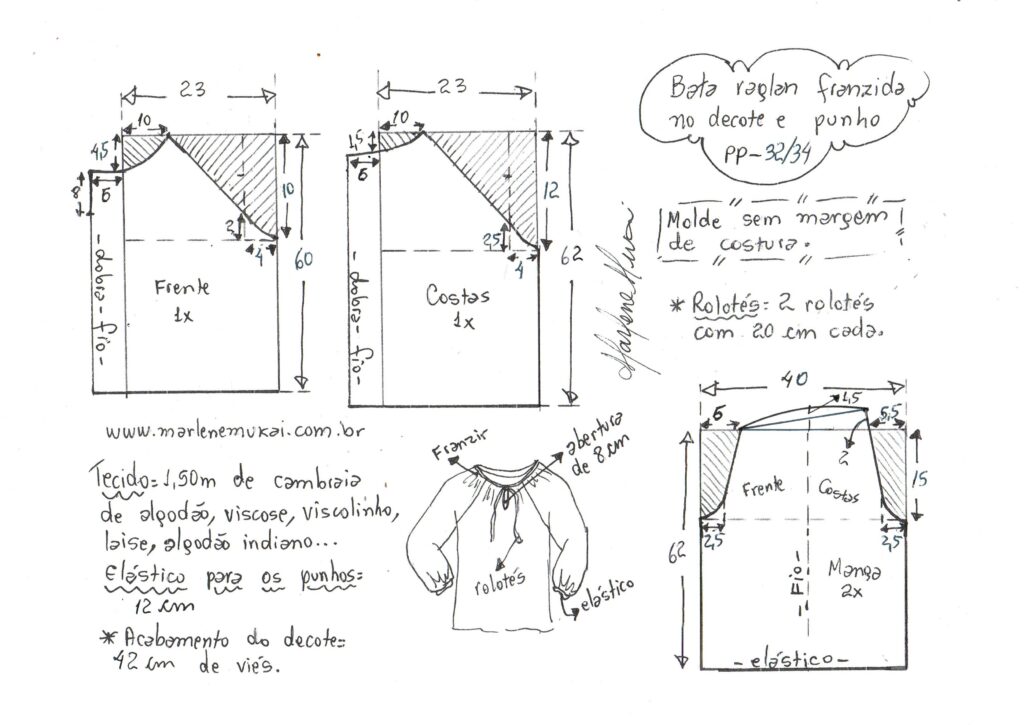 Bata raglan franzida
no decote e punho
PP-32/34
Molde sem margem
de costura.
* Rolotés= 2 rolotés
com 20 cm cada.
23
10
4,5
5
8
10
2
4
60
- dobra-fio-
Frente
1x
23
10
1,5
5
12
2,5
4
62
- dobra-fio-
Costas
1x
Marlene Mukai
www.marlenemukai.com.br
Tecido= 1,50m de cambraia
de algodão, viscose, viscolinho,
laise, algodão indiano...
Elástico para os punhos=
12 cm
* Acabamento do decote=
42 cm de viés.
Franzir
abertura
de 8 cm
rolotés
elástico
40
1,5
5,5
2
15
Frente
Costas
2,5
2,5
62
- Fio -
Manga
2x
- elástico -